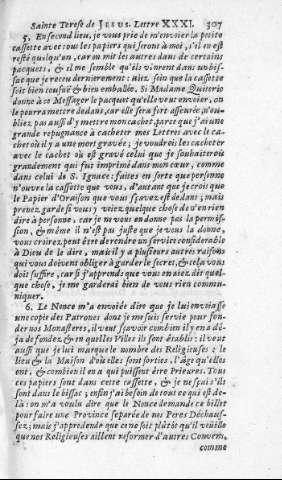 Sainte Terese de JESUS. Lettre XXXI. 307
5. En second lieu, je vous prie de m'envoier la petite
cassette avec tous les papiers qui seront à moi, s'il en est
resté quelqu'un, car on mit les autres dans de certains
pacquets, & il me semble qu'ils vinrent dans un bis-
sac que je receu dernierement: aiez soin que la cassette
soit bien cousuë & bien emballée. Si Madame Quiterio
donne à ce Messager le pacquet qu'elle veut envoier, on
le pourra mettre dedans, car elle sera fort asseurée, n'ou-
bliez pas aussi d'y mettre mon cachet, parce que j'ai une
grande repugnance à cacheter mes Lettres avec le ca-
chet où il y a une mort gravée; je voudrois les cacheter
avec le cachet où est gravé celui que je souhaiterois
grandement qui fut imprimé dans mon cœur, comme
dans celui de S. Ignace: faites en sorte que personne
n'ouvre la cassette que vous, d'autant que je crois que
le Papier d'Oraison que vous sçavez est dedans; mais
prenez garde si vous y voiez quelque chose de n'en rien
dire à personne, car je ne vous en donne pas la permis-
sion, & même il n'est pas juste que je vous la donne,
vous croirez peut être de rendre un service considerable
à Dieu de le dire, mais il y a plusieurs autres raisons
qui vous doivent obliger à garder le secret, & cela vous
doit suffire, car si j'apprends que vous en aiez dit quel-
que chose, je me garderai bien de vous rien commu-
niquer.
6. Le Nonce m'a envoiée dire que je lui envoiasse
une copie des Patrones dont je me suis servie pour fon-
der nos Monasteres, il veut sçavoir combien il y en a dé-
ja de fondez, & en quelles Villes ils sont établis: il veut
aussi que je lui marque le nombre des Religieuses; le
lieu & la Maison d'où elles sont sorties, l'âge qu'elles
ont, & combien il en a qui puissent être Prieures. Tous
ces papiers sont dans cette cassette, & je ne sçais s'ils
sont dans le bissac; enfin j'ai besoin de tout ce qui est de-
là: on m'a voulu dire que le Nonce demande ce billet
pour faire une Province separée de nos Peres Déchaus-
sez; mais j'apprehende que ce ne soit plûtôt qu'il veüille
que nos Religieuses aillent reformer d'autres Convens,
comme